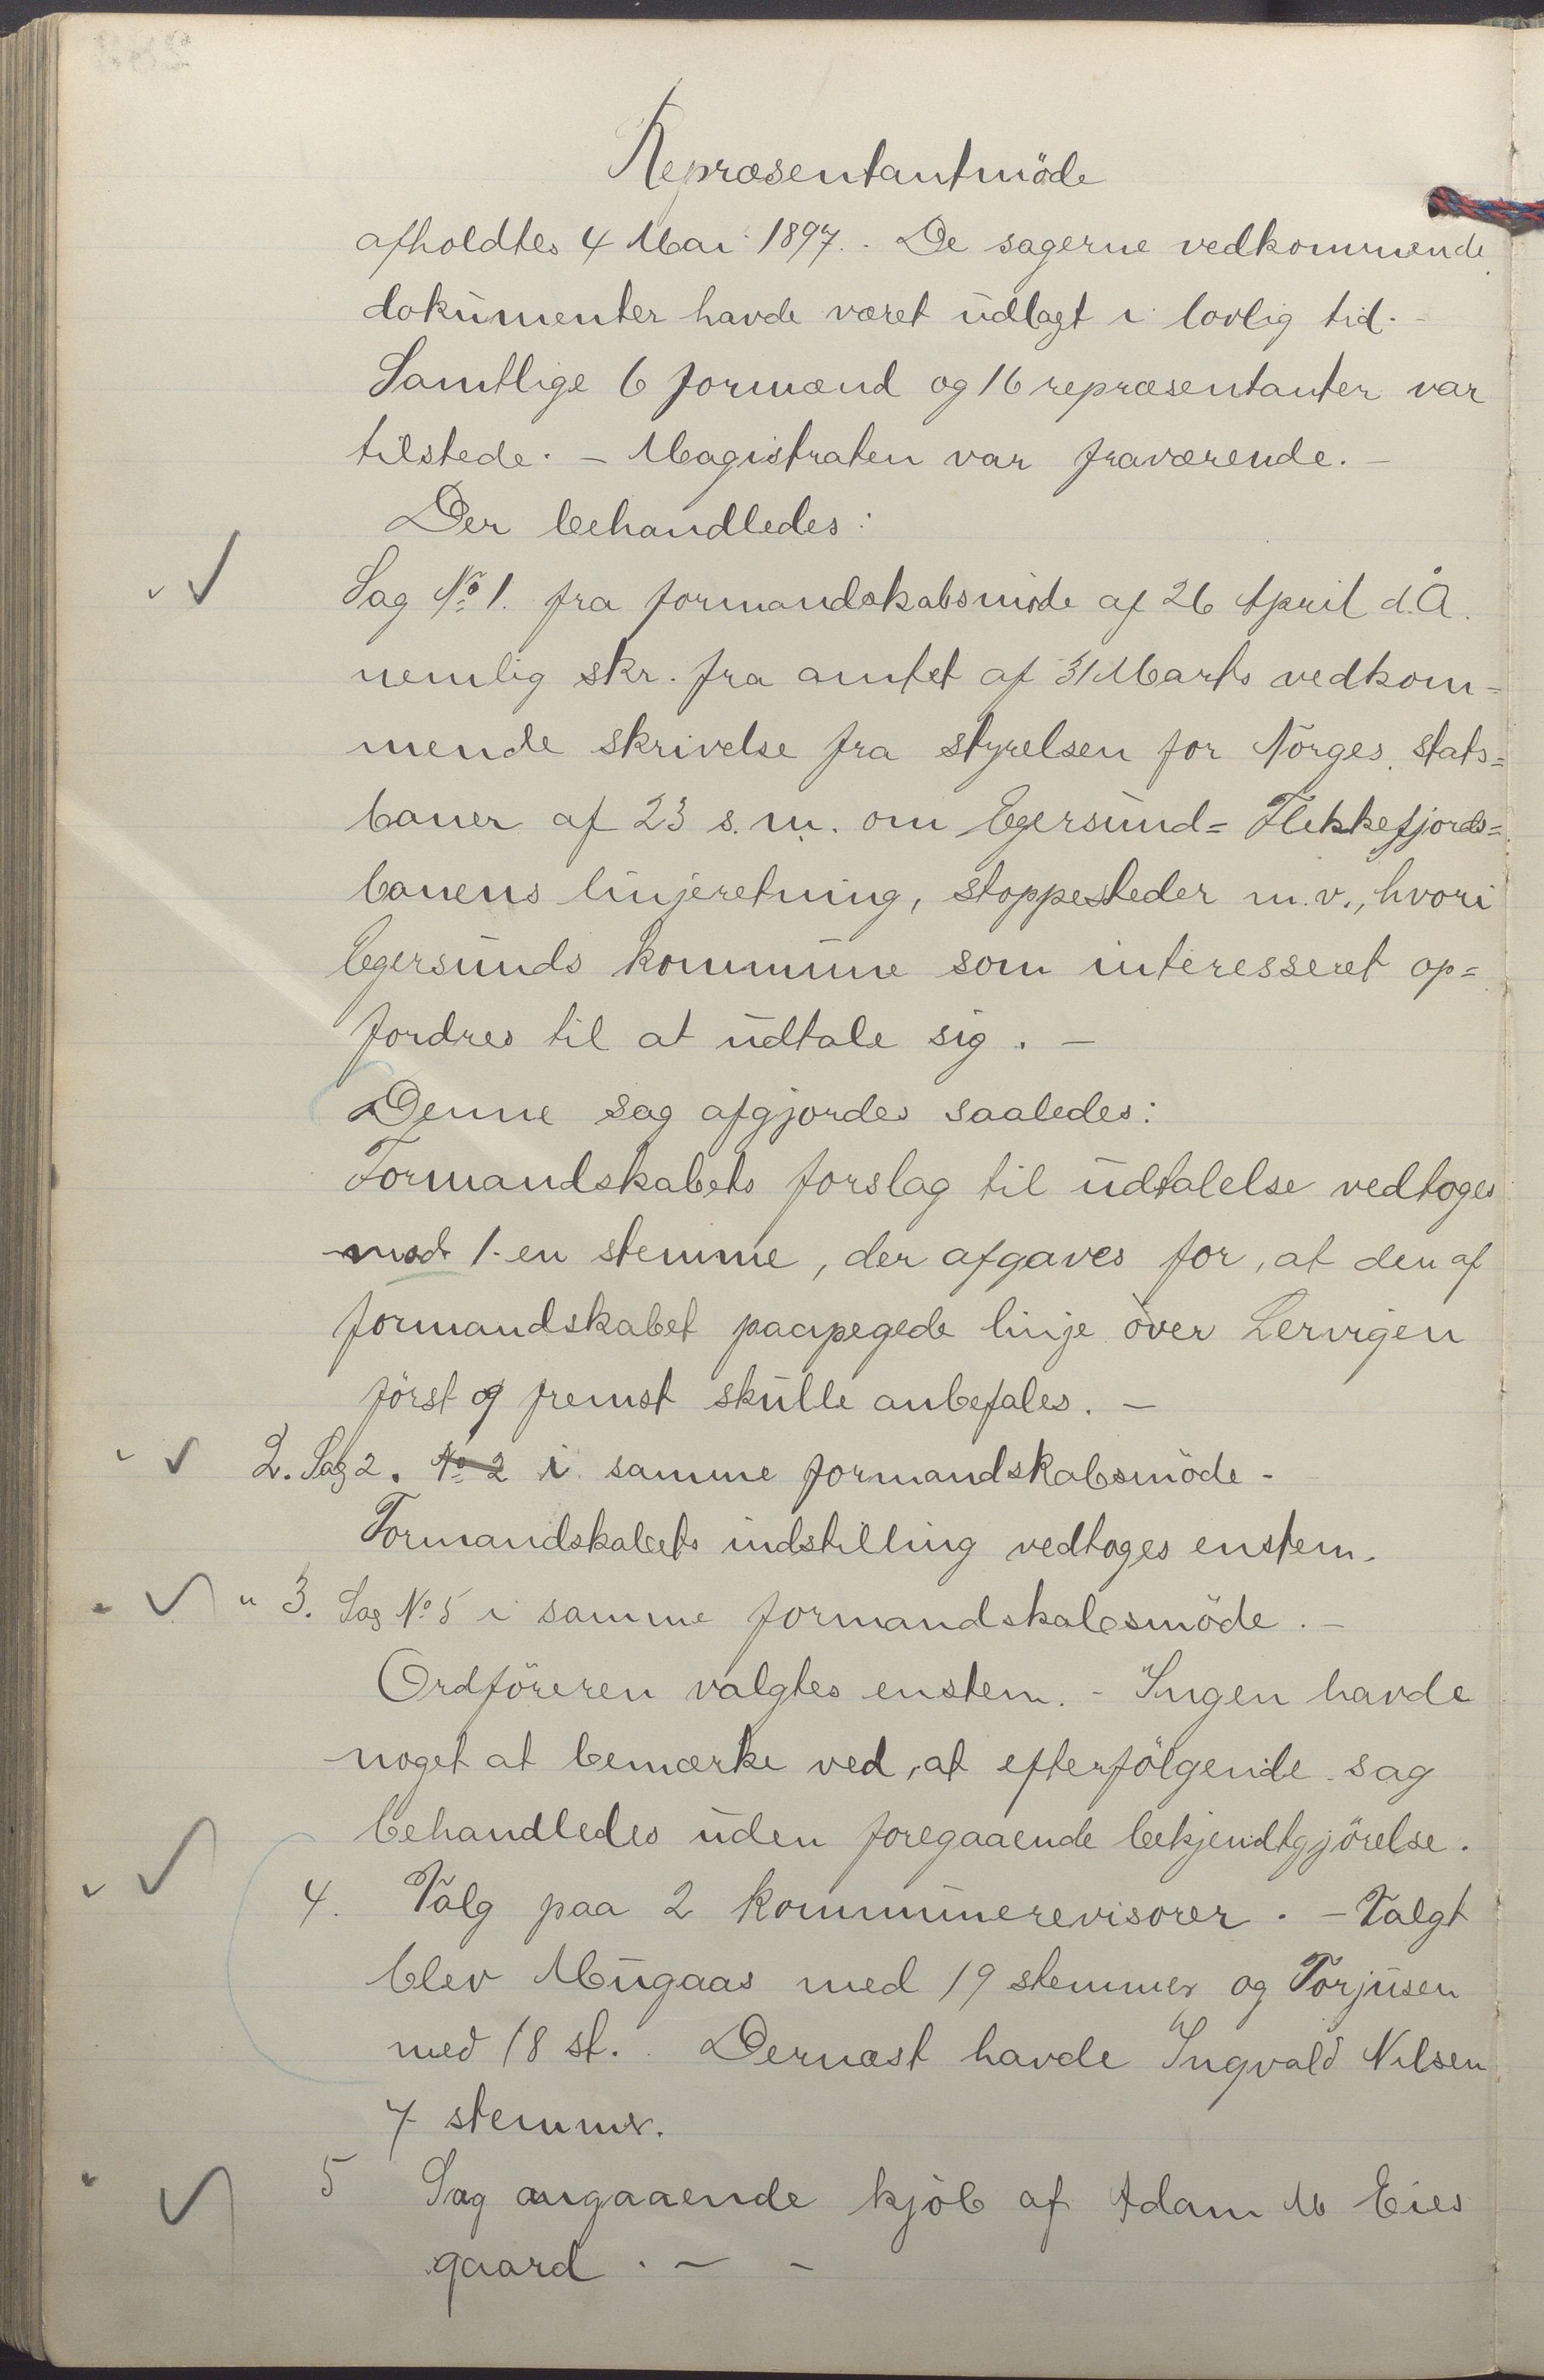 Repræsentantmöde
afholdtes 4 Mai 1897. De sagerne vedkommende
dokumenter havde været udlagt i lovlig tid.
Samtlige 6 formænd og 16 repræsentanter var
tilstede. – Magistraten var fraværende. –
Der behandledes:
Sag No 1. fra formandskabsmöde af 26 April d.Å.
nemlig skr. fra amtet af 31 Marts vedkom=
mende skrivelse fra styrelsen for Norges stats=
baner af 23 s.m. om Egersund= Flekkefjords=
banens linjeretning, stoppesteder m.v., hvori
Egersunds kommune som interesseret op=
fordres til at udtale sig. –
Denne sag afgjordes saaledes:
Formandskabets forslag til udtalelse vedtoges
mod 1 en stemme, der afgaves for, at den af
formandskabet paapegede linje over Lervigen
först og fremst skulle anbefales. –
2. Sag 2. No 2 i samme formandskabsmöde.
Formandskabets indstilling vedtoges enstem.
" 3. Sag No 5 i samme formandskabsmöde. –
Ordföreren valgtes enstem. – Ingen havde
noget at bemærke ved, at efterfölgende sag
behandledes uden foregaaende bekjendtgjörelse.
4. Valg paa 2 kommunerevisorer. – Valgt
blev Mugaas med 19 stemmer og Torjusen
med 18 st. Dernæst havde Ingvald Nilsen
7 stemmer.
5 Sag angaaende kjöb af Adam M Eies
gaard. – –